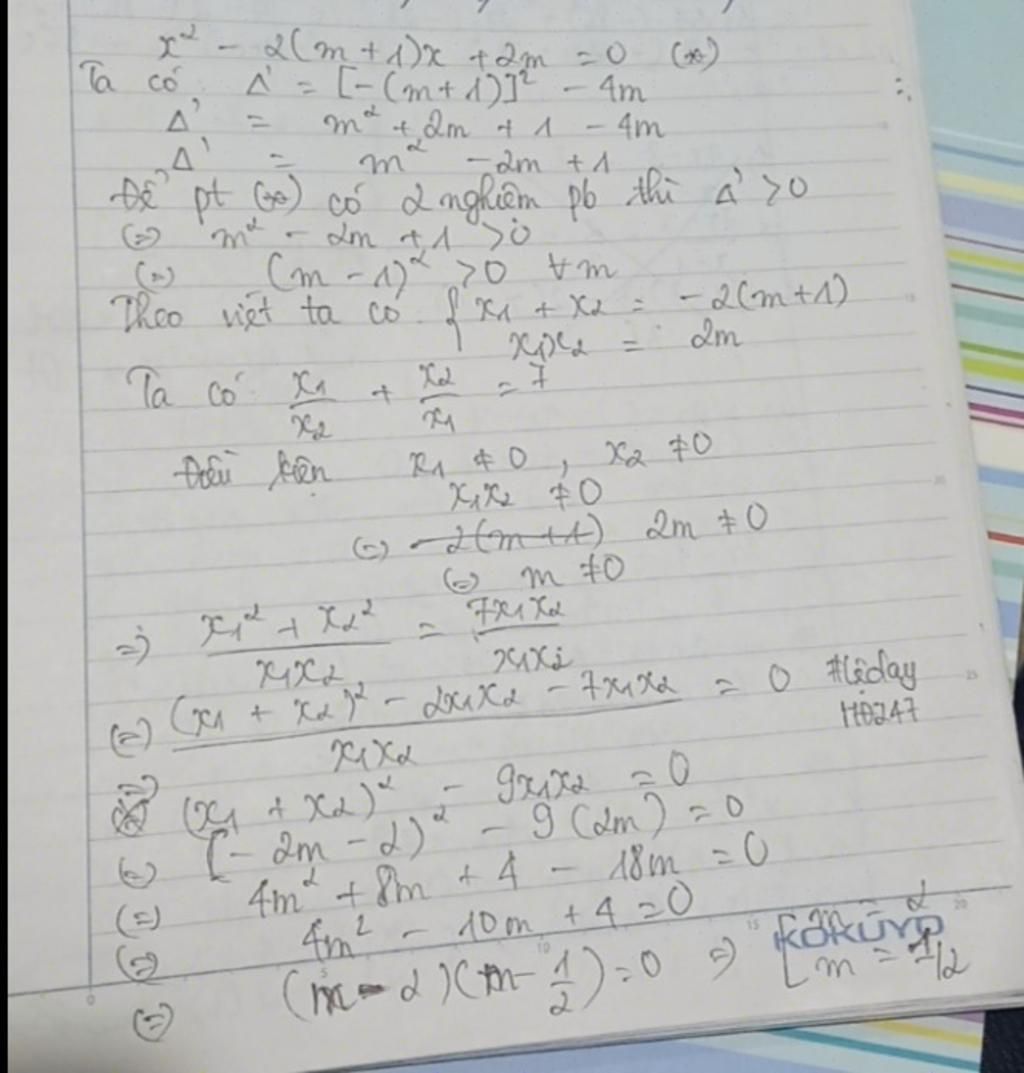 x² - 2(m+1)x + 2m = 0 (*)
Ta có Δ' = [-(m+1)]² - 4m
Δ' = m² + 2m + 1 - 4m
Δ' = m² - 2m + 1
Để pt (*) có 2 nghiệm pb thì Δ' > 0
(=) m² - 2m + 1 > 0
(=) (m - 1)² > 0 ∀m
Theo viét ta có { x1 + x2 = -2(m+1)
x1x2 = 2m
Ta có x1/x2 + x2/x1 = 7
Điều kiện x1 ≠ 0, x2 ≠ 0
x1x2 ≠ 0
(=) 2m ≠ 0
(=) m ≠ 0
=) (x1² + x2²)/(x1x2) = 7x1x2/(x1x2)
(=) ((x1 + x2)² - 2x1x2 - 7x1x2)/(x1x2) = 0
H0247
=) (x1 + x2)² - 9x1x2 = 0
(=) [-2m - 2)² - 9(2m) = 0
(=) 4m² + 8m + 4 - 18m = 0
(=) 4m² - 10m + 4 = 0
(=) (m - 2)(m - 1/2) = 0 =) [ m = 2
m = 1/2
KOKUYO